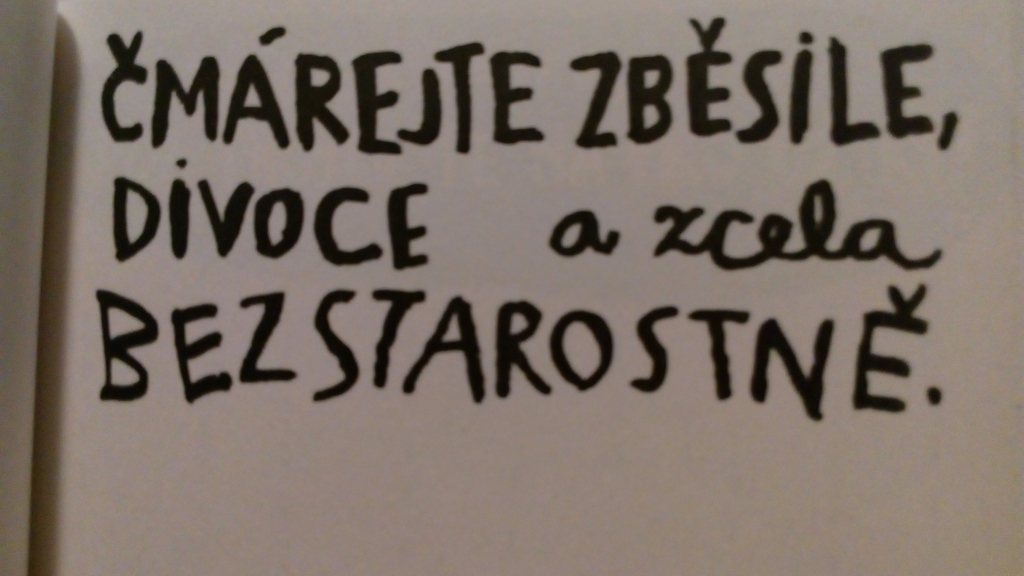 ČMÁREJTE ZBĚSILE,
DIVOCE a zcela
BEZSTAROSTNĚ.